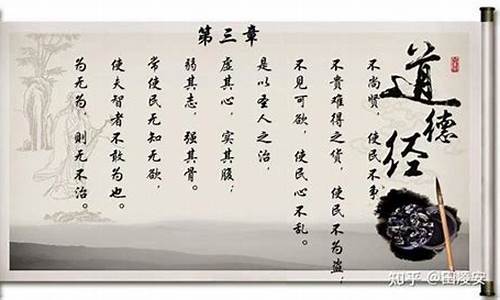 道德经
第三章
不尚贤，使民不争；
不贵难得之货，使民不为盗；
不见可欲，使民心不乱。
是以圣人之治，
虚其心，实其腹；
弱其志，强其骨。
常使民无知无欲，
使夫智者不敢为也。
为无为，则无不治。
知乎